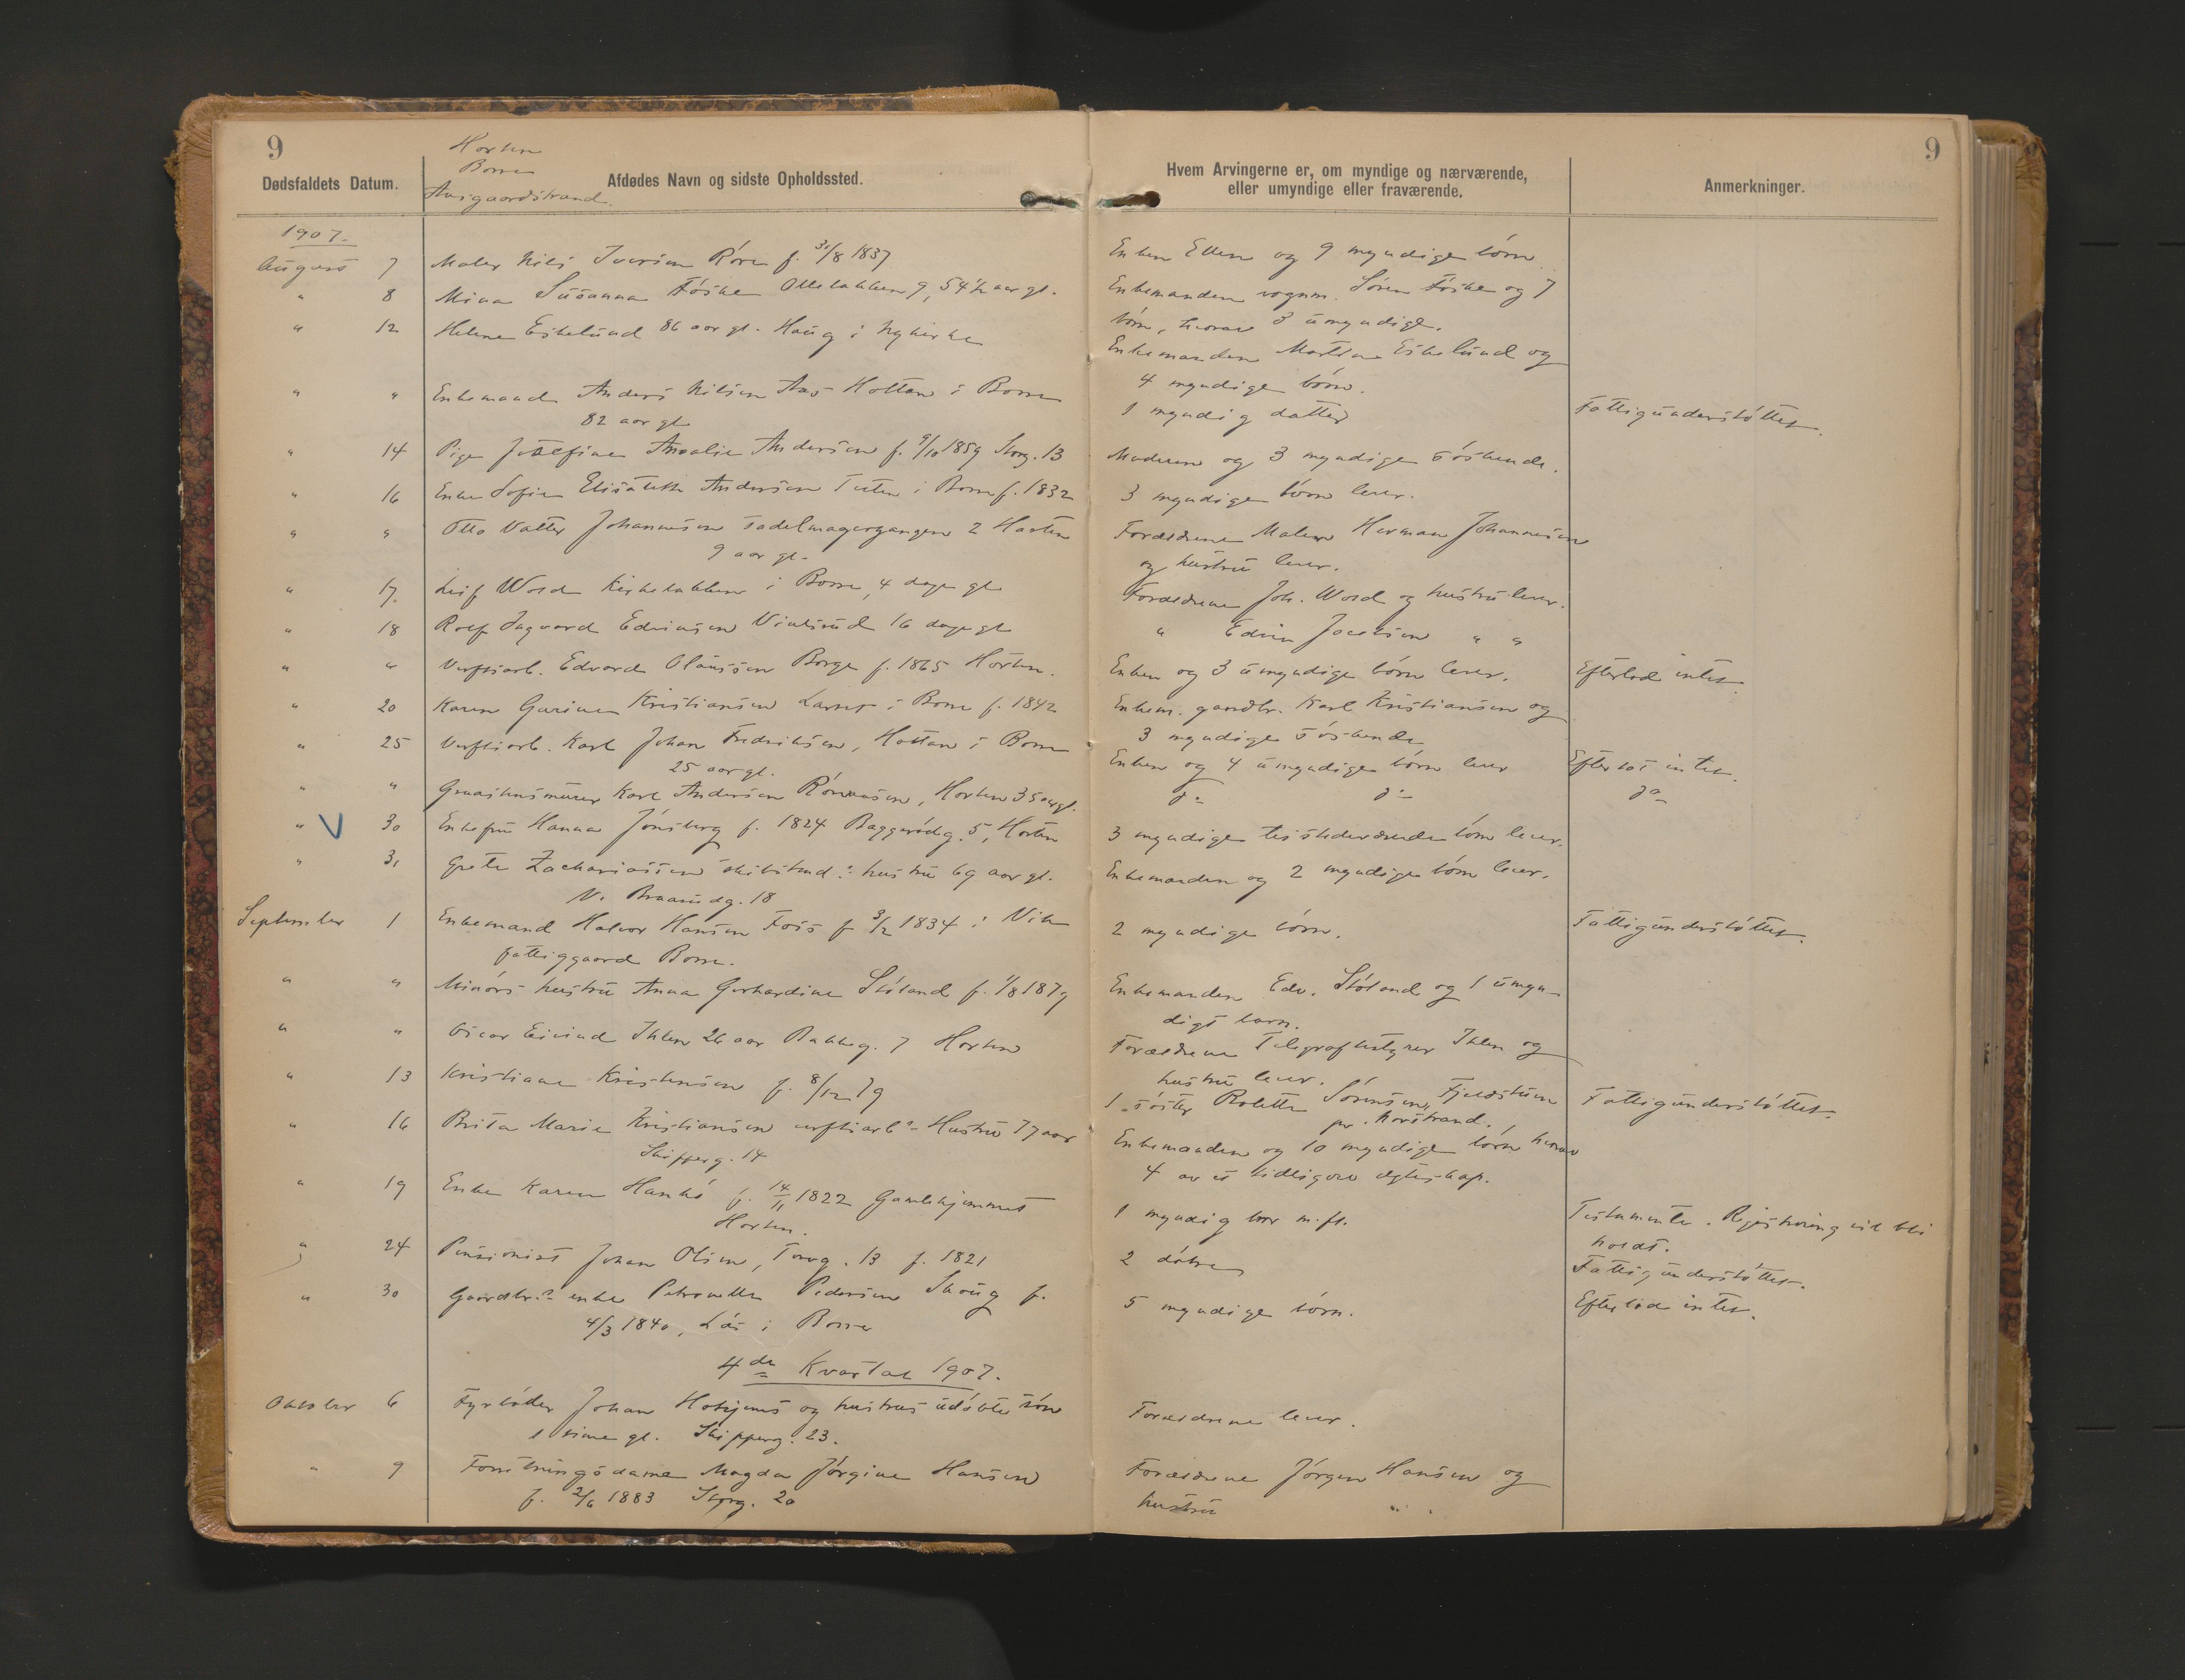 9
Horten
Borre
Aasgaardstrand.
Dødsfaldets Datum.
Afdødes Navn og sidste Opholdssted.
1907.
August 7 Maler Nils Iversen Röre f. 31/8 1837
" 8 Mina Susanna Föske Ollelökken 9, 54½ aar gl.
" 12 Helene Eskelund 86 aar gl. Haug i Nykirke
" " Enkemand Anders Nilsen Aas Holtan i Borre
82 aar gl.
" 14 Pige Josefine Amalie Andersen f. 9/10 1859 Storg. 13
" 16 Enke Sofie Elisabeth Andersen i Borre f. 1832
" " Otto Valter Johannesen Sadelmagergangen 2 Horten
9 aar gl.
" 17 Leif Wold Kirkebakken i Borre, 4 dage gl
" 18 Rolf Ingvard Edvinsen 16 dage gl
" " Verftsarb. Edvard Olaussen Borge f. 1865 Horten.
" 20 Karen Gurine Kristiansen i Borre f. 1842
" 25 Verftsarb. Karl Johan Fredriksen, Holtan i Borre
25 aar gl.
" " Graastensmurer Karl Andersen, Horten 35 aar gl.
" V 30 Enkefru Hanna Jönsberg f. 1824 Baggerödg. 5, Horten
" 31 Grete Zachariassen skibstmd.s hustru 69 aar gl.
V. Braarudg. 18
September 1 Enkemand Halvor Hansen Foss f 3/2 1834 i Vik
fattiggaard Borre.
" " Minörs hustru Anna Gerhardine Stöland f. 1/8 1879
" " Oscar Eivind Ihlen 26 aar Bakkeg. 7 Horten
" 13 Kristiane Kristensen f. 8/12 79
" 16 Brita Marie Kristiansen verftsarb.s Hustru 77 aar
Skipperg. 14
" 19 Enke Karen Hankö f. 14/11 1822 Gamlehjemmet
Horten.
" 24 Pensionist Johan Olsen, Torvg. 13 f. 1821
" 30 Gaardbr.s enke Petronelle Pedersen Skoug f.
4/3 1840, Lös i Borre
4de Kvartal 1907.
Oktober 6 Fyrböder Johan og hustrus udöbte sön
1 time gl. Skipperg. 23.
" 9 Forretningsdame Magda Jörgine Hansen
f. 2/6 1883 Storg. 20
9
Hvem Arvingerne er, om myndige og nærværende,
eller umyndige eller fraværende.
Anmerkninger.
Enken Ellen og 9 myndige börn
Enkemanden vognm. Sören Föske og 7
börn, hvorav 3 umyndige.
Enkemanden Martin Eskelund og
4 myndige börn.
1 myndig datter Fattigunderstöttet.
Moderen og 3 myndige söskende.
3 myndige börn lever.
Forældrene Maler Herman Johannesen
og hustru lever.
Forældrene Joh. Wold og hustru lever.
" Edvin Jacobsen " "
Enken og 3 umyndige börn lever. Efterlod intet.
Enkem. gaardbr. Karl Kristiansen og
3 myndige söskende
Enken og 4 umyndige börn lever Efterlot intet.
do do do
3 myndige tilstedeværende börn lever.
Enkemanden og 2 myndige börn lever.
2 myndige börn. Fattigunderstöttet.
Enkemanden Edv. Stöland og 1 umyn-
digt barn.
Forældrene Telegrafbestyrer Ihlen og
hustru lever.
1 söster Rolette Sörensen, Fjeldstuen Fattigunderstöttet.
pr. Norstrand.
Enkemanden og 10 myndige börn hvorav
4 av et tidligere egteskap.
1 myndig bror m.fl. Testamente. Registrering vil bli
holdt.
2 dötre Fattigunderstöttet.
5 myndige börn. Efterlod intet.
Forældrene lever.
Forældrene Jörgen Hansen og
hustru " "